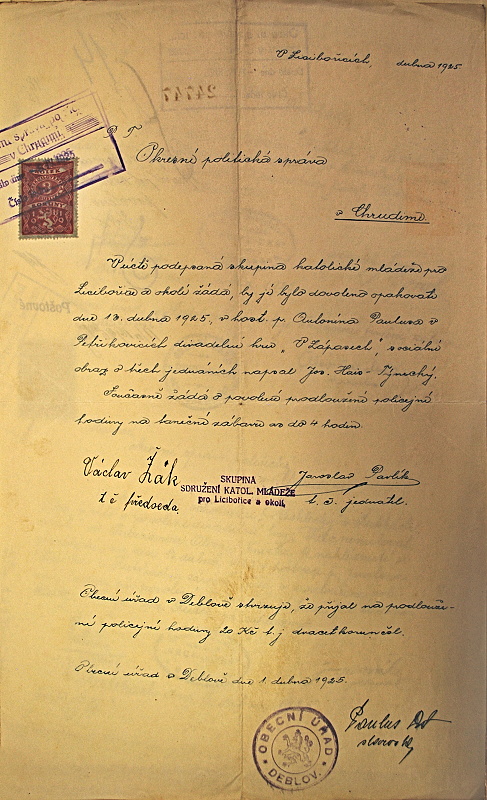 V Licibořicích, dubna 1925
24747
P. T.
v Chrudimi
Okresní politická správa
v Chrudimi.
3
Poštovné
V úctě podepsaná skupina katolické mládeže pro
Licibořice a okolí žádá, by jí bylo dovoleno opakovati
dne 13. dubna 1925, v host. p. Antonína Pauluse v
Petříkovicích divadelní hru „V Zápasech", sociální
obraz o třech jednáních napsal Jos. Hais-Týnecký.
Současně žádá o povolení prodloužení policejní
hodiny na taneční zábavu as do 4 hodin.
Václav Žák
t č předseda.
SKUPINA
SDRUŽENÍ KATOL. MLÁDEŽE
pro Licibořice a okolí.
Jaroslav Pavlík
t. č. jednatel.
Obecní úřad v Deblově stvrzuje, že přijal na prodlouže-
ní policejní hodiny 20 Kč t. j dvacet korun čsl.
Obecní úřad v Deblově dne 1. dubna 1925.
Paulus
starosta
OBECNÍ ÚŘAD
DEBLOV.